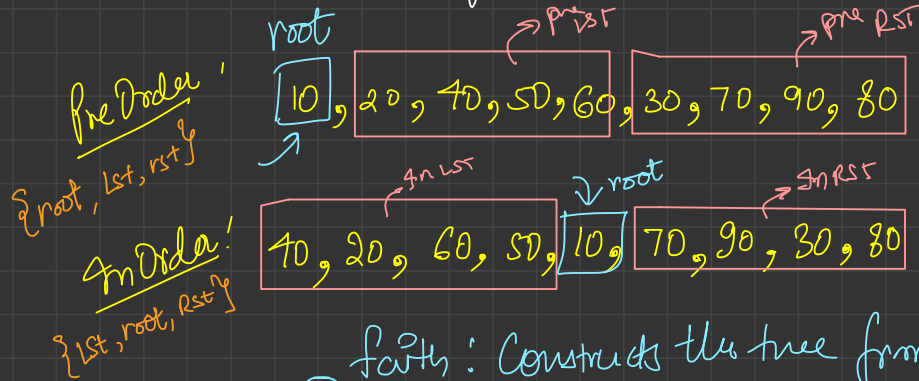 root
pre LST
pre RST
PreOrder:
10, 20, 40, 50, 60, 30, 70, 90, 80
{root, Lst, rst}
In LST
root
In RST
InOrder:
40, 20, 60, 50, 10, 70, 90, 30, 80
{Lst, root, Rst}
faith: Constructs the tree from